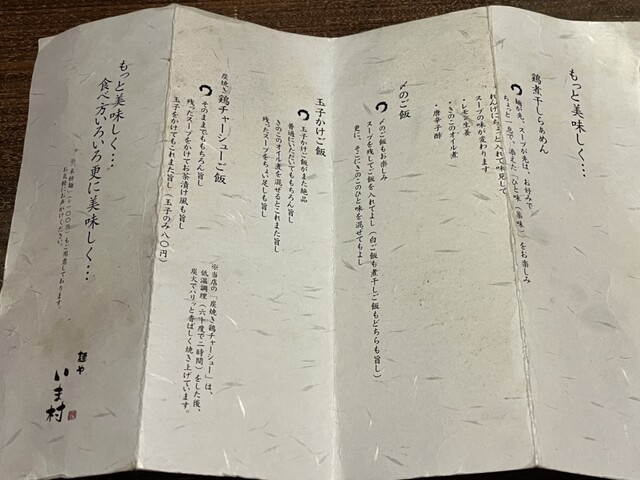 もっと美味しく…
鶏煮干しらぁめん
麺が先、スープが先は、お好みで
ちょっと一息で、添えた「ひと味（薬味）」をお楽しみ
れんげにちょっと入れて味見して
スープの味が変わります
・レモン生姜
・きのこのオイル煮
・唐辛子酢
〆のご飯
〆のご飯もお楽しみ
スープを残してご飯を入れてよし（白ご飯も煮干しご飯もどちらも旨し）
更に、そこにきのこのひと味を混ぜてもよし
玉子かけご飯
玉子かけご飯がまた絶品
普通にいただいてももちろん旨し
きのこのオイル煮を混ぜるとこれまた旨し
残ったスープをちょい足しも旨し
炭焼き鶏チャーシューご飯
そのままでももちろん旨し
残ったスープをかけてお茶漬け風も旨し
玉子をかけてもこれまた旨し（玉子のみ八〇円）
※当店の「炭焼き鶏チャーシュー」は、
低温調理（六十度で二時間）をした後、
炭火でパリッと香ばしく焼き上げています。
もっと美味しく…
食べ方いろいろ更に美味しく…
もご用意しております。
お気軽にお声がけください。
麺や
いま村